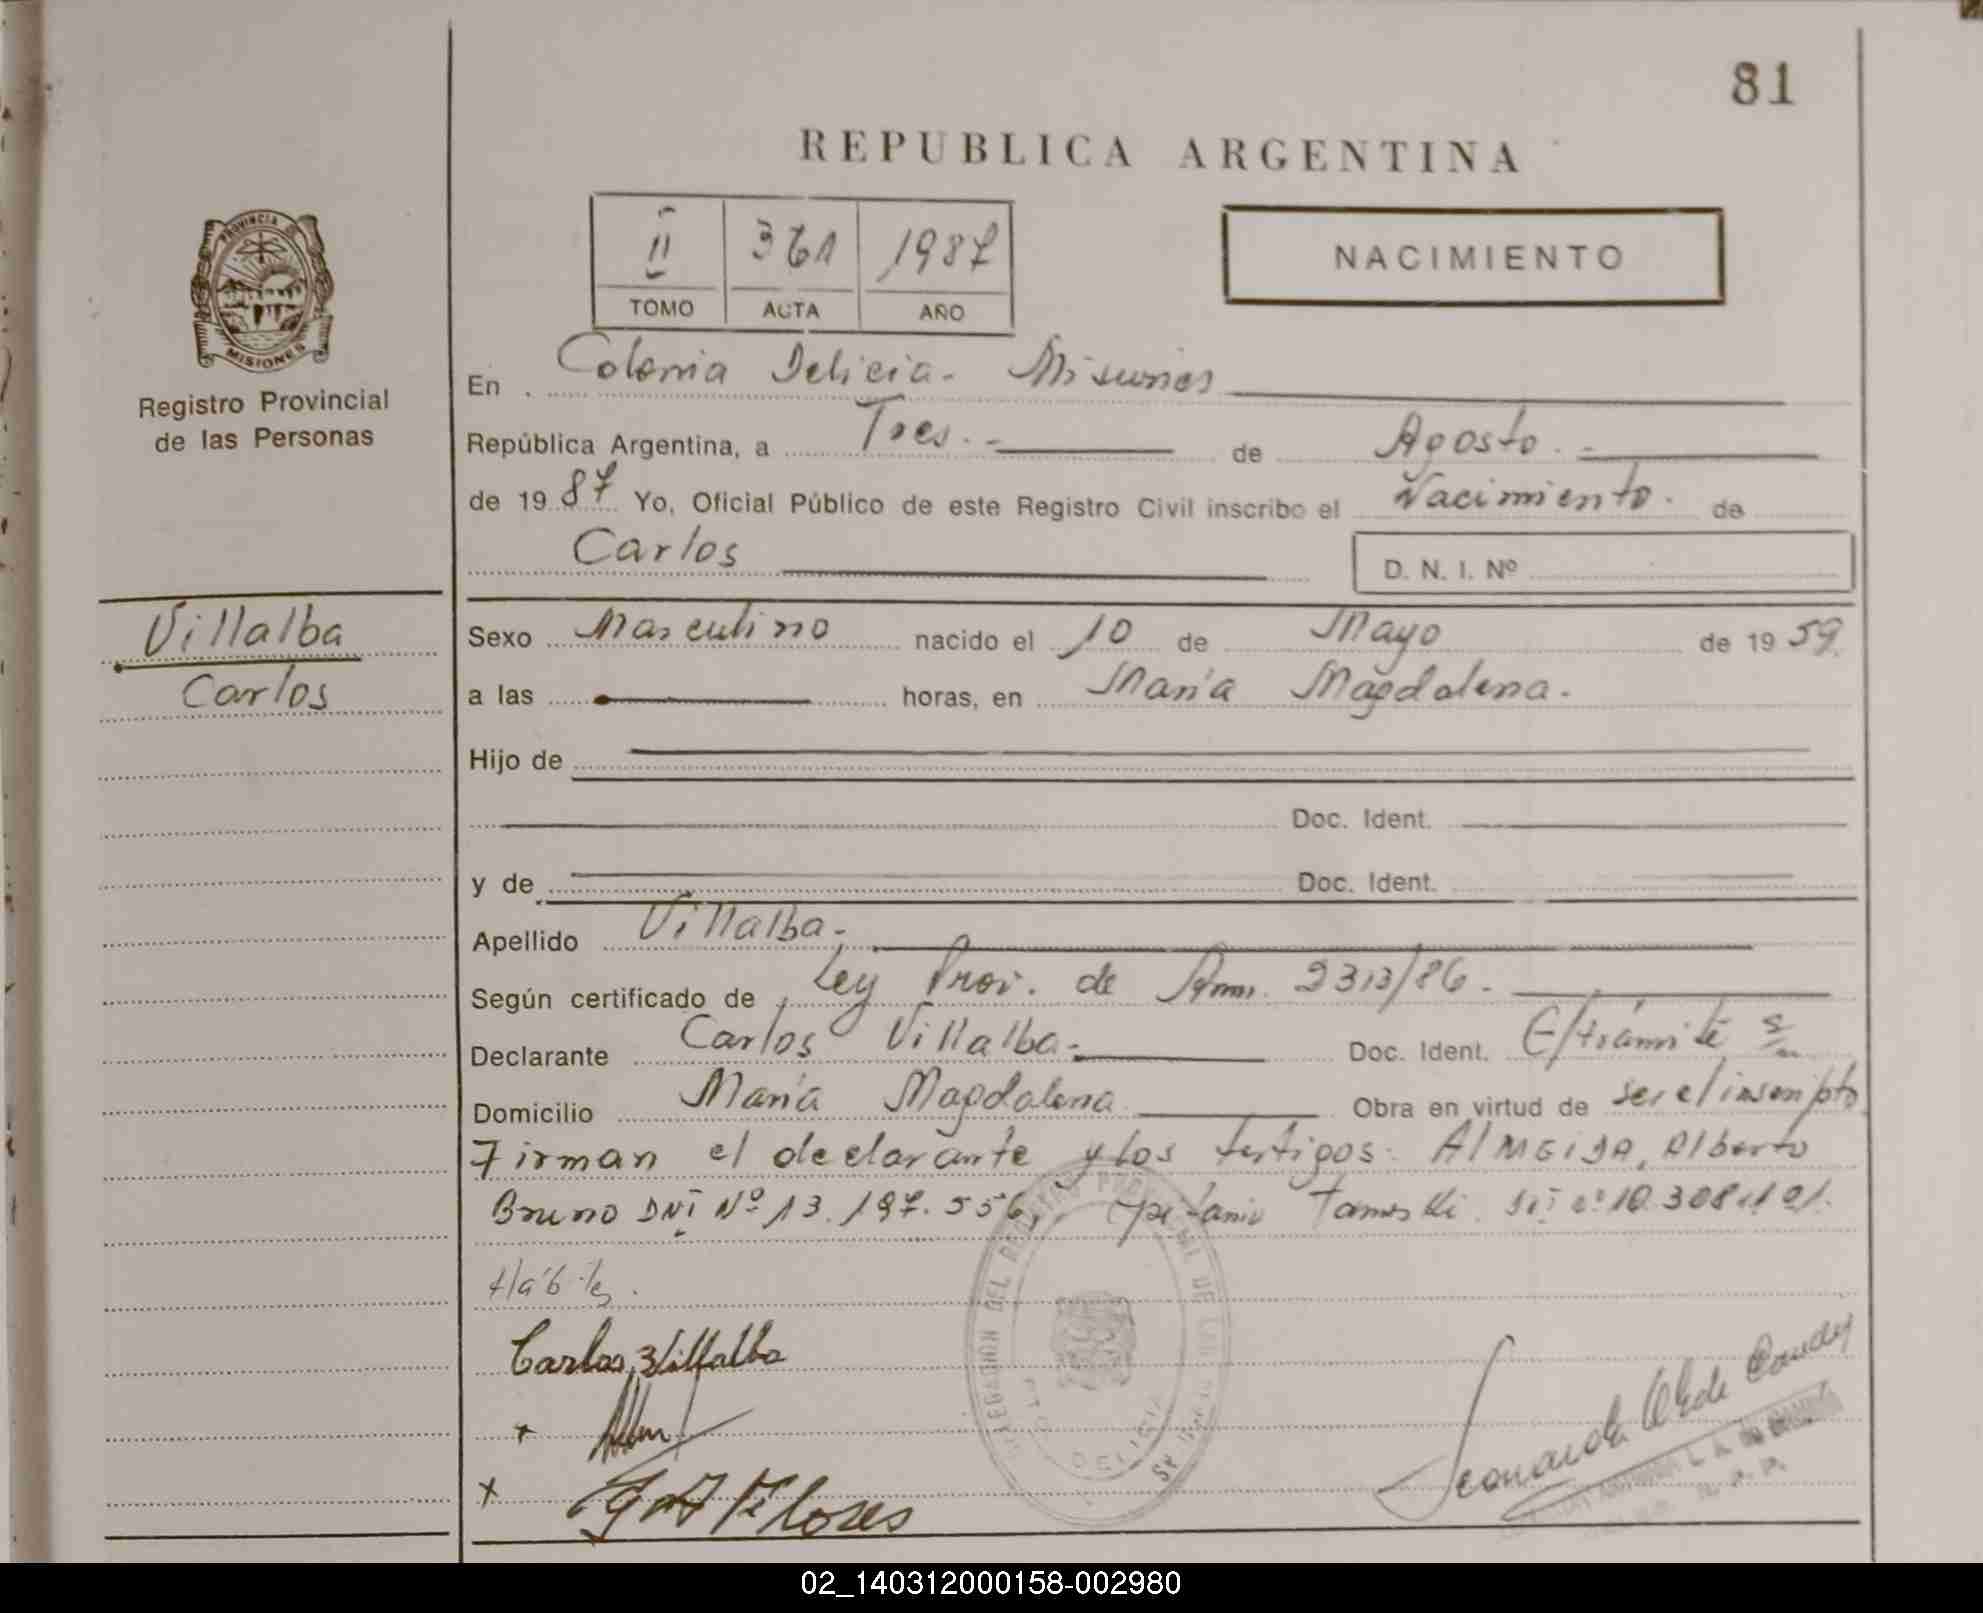 81
REPUBLICA ARGENTINA
II 361 1987
TOMO ACTA AÑO
NACIMIENTO
PROVINCIA DE
MISIONES
Registro Provincial
de las Personas
En Colonia Delicia - Misiones
República Argentina, a Tres.- de Agosto.-
de 1987 Yo, Oficial Público de este Registro Civil inscribo el Nacimiento. de
Carlos D. N. I. Nº
Villalba
Carlos
Sexo Masculino nacido el 10 de Mayo de 1959.
a las horas, en María Magdalena.
Hijo de
Doc. Ident.
y de Doc. Ident.
Apellido Villalba.
Según certificado de Ley Prov. de Amn. 2313/86.
Declarante Carlos Villalba. Doc. Ident. E/trámite
Domicilio María Magdalena Obra en virtud de ser el inscripto
Firman el declarante y los testigos: ALMEIDA, Alberto
Bruno DNI Nº 13.197.556,
Hábiles.
Carlos Villalba
x
x Flores
DEL REGISTRO PROVINCIAL DE LAS
DELICIA
02_140312000158-002980